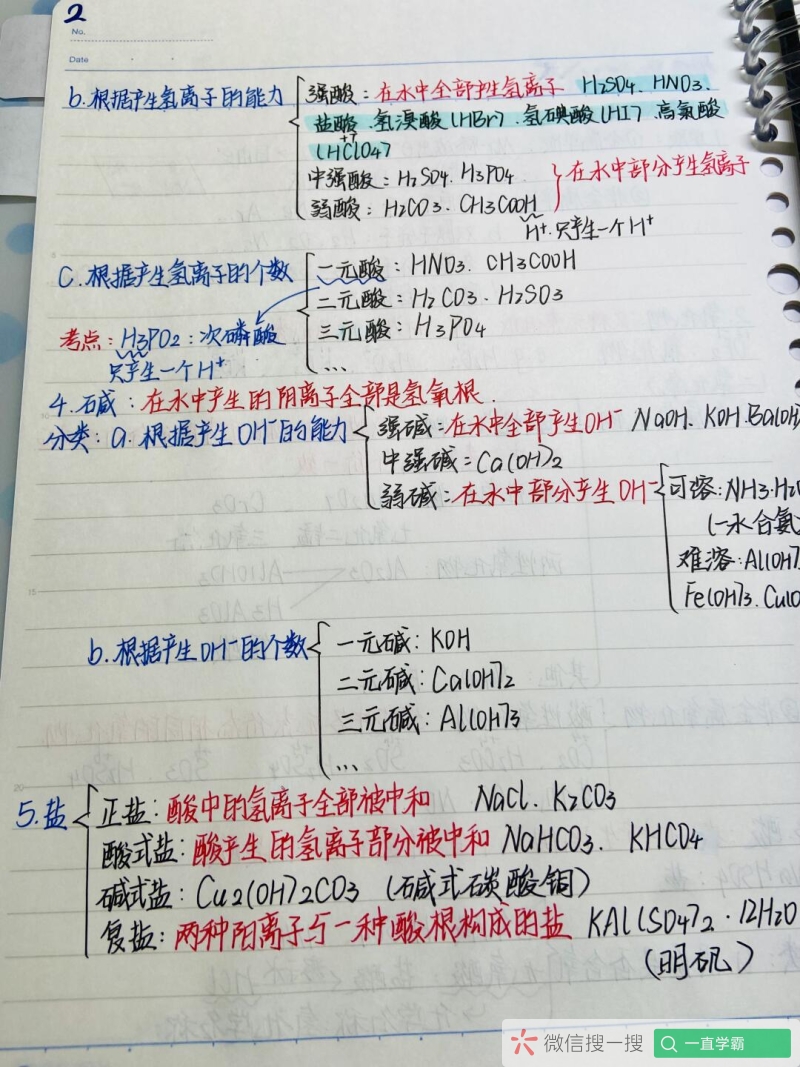 2
No.
Date
b.根据产生氢离子的能力
强酸：在水中全部产生氢离子 H2SO4、HNO3、
盐酸、氢溴酸(HBr)、氢碘酸(HI)、高氯酸
(HClO4)
中强酸：H2SO4、H3PO4
弱酸：H2CO3、CH3COOH
在水中部分产生氢离子
H+、只产生一个H+
C.根据产生氢离子的个数
一元酸：HNO3、CH3COOH
二元酸：H2CO3、H2SO3
三元酸：H3PO4
...
考点：H3PO2：次磷酸
只产生一个H+
4.碱：在水中产生的阴离子全部是氢氧根.
分类：a.根据产生OH-的能力
强碱：在水中全部产生OH- NaOH、KOH、Ba(OH
中强碱：Ca(OH)2
弱碱：在水中部分产生OH-
可溶：NH3·H2O
(一水合氨
难溶：Al(OH)
Fe(OH)3、Cu(O
b.根据产生OH-的个数
一元碱：KOH
二元碱：Ca(OH)2
三元碱：Al(OH)3
...
5.盐
正盐：酸中的氢离子全部被中和 NaCl、K2CO3
酸式盐：酸产生的氢离子部分被中和 NaHCO3、KHCO4
碱式盐：Cu2(OH)2CO3 (碱式碳酸铜)
复盐：两种阳离子与一种酸根构成的盐 KAl(SO4)2·12H2O
(明矾)
微信搜一搜
一直学霸